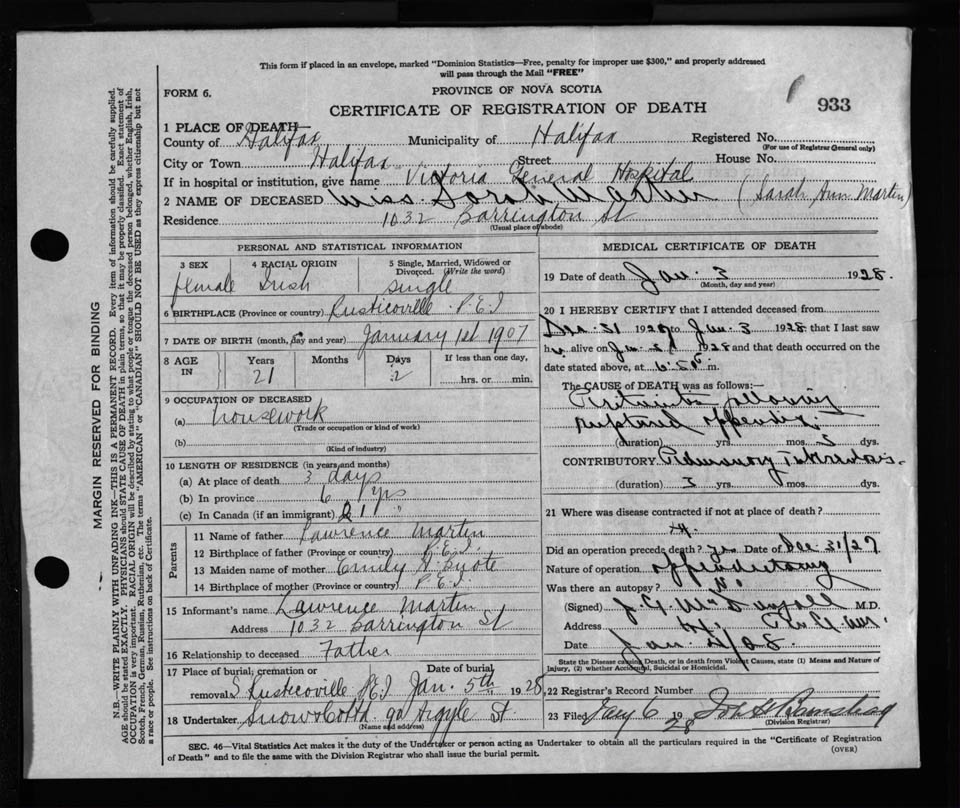 This form if placed in an envelope, marked "Dominion Statistics—Free, penalty for improper use $300," and properly addressed
will pass through the Mail "FREE"
FORM 6.
PROVINCE OF NOVA SCOTIA
CERTIFICATE OF REGISTRATION OF DEATH
933
1 PLACE OF DEATH—
County of Halifax Municipality of Halifax Registered No.
(For use of Registrar General only)
City or Town Halifax Street House No.
If in hospital or institution, give name Victoria General Hospital
2 NAME OF DECEASED Miss Sarah Martin (Sarah Ann Martin)
Residence 1032 Barrington St
(Usual place of abode)
PERSONAL AND STATISTICAL INFORMATION
3 SEX 4 RACIAL ORIGIN 5 Single, Married, Widowed or
Divorced. (Write the word)
female Irish single
6 BIRTHPLACE (Province or country) Rusticoville P.E.I
7 DATE OF BIRTH (month, day and year) January 1st 1907
8 AGE IN Years Months Days If less than one day,
21 2 hrs. or min.
9 OCCUPATION OF DECEASED
(a) housework
(Trade or occupation or kind of work)
(b)
(Kind of industry)
10 LENGTH OF RESIDENCE (in years and months)
(a) At place of death 3 days
(b) In province 6 yrs
(c) In Canada (if an immigrant) 21 "
Parents
11 Name of father Lawrence Martin
12 Birthplace of father (Province or country) P.E.I.
13 Maiden name of mother Emily
14 Birthplace of mother (Province or country) P.E.I
15 Informant's name Lawrence Martin
Address 1032 Barrington St
16 Relationship to deceased Father
17 Place of burial; cremation or Date of burial
removal S Rusticoville P.E.I Jan. 5th 1928
18 Undertaker Snow & Co Ltd. 90 Argyle St
(Name and address)
MEDICAL CERTIFICATE OF DEATH
19 Date of death Jan. 3 1928.
(Month, day and year)
20 I HEREBY CERTIFY that I attended deceased from
Dec. 31 1927 to Jan. 3 1928 that I last saw
h alive on Jan. 1928 and that death occurred on
date stated above, at 6 m.
The CAUSE OF DEATH was as follows:—
Peritonitis following
ruptured appendix
(duration) yrs. mos. 5 dys.
CONTRIBUTORY Pulmonary Tuberculosis.
(duration) 3 yrs. mos. dys.
21 Where was disease contracted if not at place of death?
Did an operation precede death? yes Date of Dec. 31/27
Nature of operation appendectomy
Was there an autopsy? No
(Signed) J. M.D.
Address
Date Jan.
State the Disease causing Death, or in death from Violent Causes, state (1) Means and Nature of
Injury, (2) whether Accidental, Suicidal or Homicidal.
22 Registrar's Record Number
23 Filed Jany 6 1928
(Division Registrar)
SEC. 46—Vital Statistics Act makes it the duty of the Undertaker or person acting as Undertaker to obtain all the particulars required in the "Certificate of Registration
of Death" and to file the same with the Division Registrar who shall issue the burial permit.
(OVER)
MARGIN RESERVED FOR BINDING
N.B.—WRITE PLAINLY WITH UNFADING INK—THIS IS A PERMANENT RECORD. Every item of information should be carefully supplied.
AGE should be stated EXACTLY. PHYSICIANS should STATE CAUSE OF DEATH in plain terms, so that it may be properly classified. Exact statement of
OCCUPATION is very important. RACIAL ORIGIN will be described by stating to what people or tongue the deceased person belonged, whether English, Irish,
Scotch, French, German, Russian, Ruthenian, etc. The terms "AMERICAN" or "CANADIAN" SHOULD NOT BE USED as they express citizenship but not
a race or people. See instructions on back of Certificate.